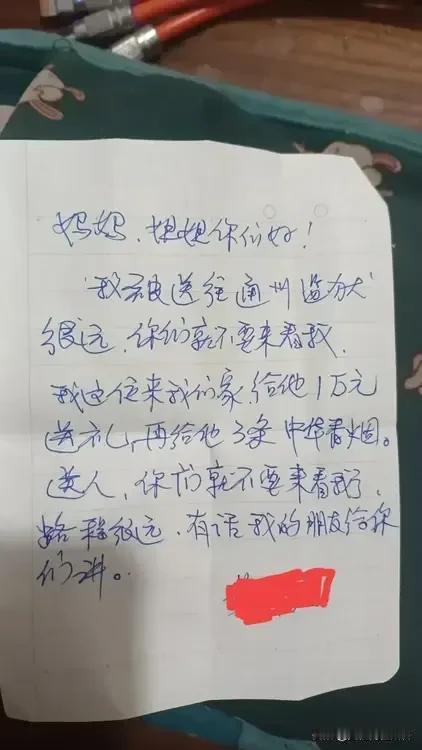 妈妈、姐姐你们好！
我被送往通州监狱
很远、你们就不要来看我、
我这位来我们家、给他1万元
送礼、再给他3条中华香烟。
送人、你们就不要来看我了、
路程很远、有话我的朋友给你
们讲。